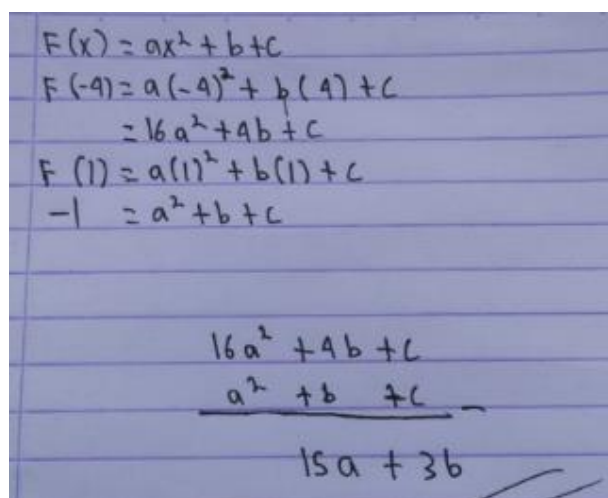 F(x) = ax² + b + c
F(-4) = a(-4)² + b(4) + c
= 16a² + 4b + c
F(1) = a(1)² + b(1) + c
-1 = a² + b + c
16a² + 4b + c
a² + b + c –
15a + 3b